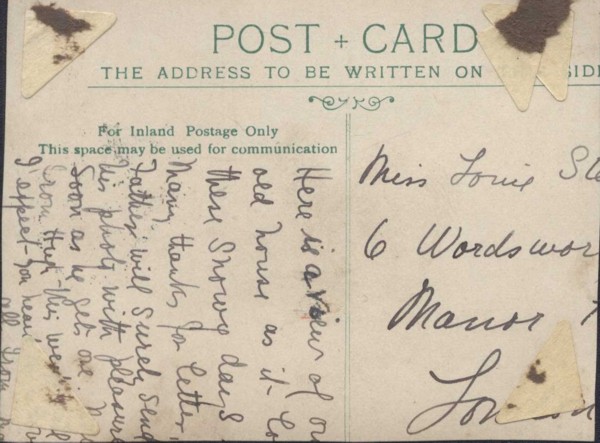 POST + CARD
THE ADDRESS TO BE WRITTEN ON SIDE
For Inland Postage Only
This space may be used for communication
Here is a view of our
old house as it
these snowy days
Many thanks for letter
Father will surely send
his photo with pleasure
Soon as he gets one
from Hunt this
I expect you hear
all from
Miss Louie
6 Wordswor
Manor
London